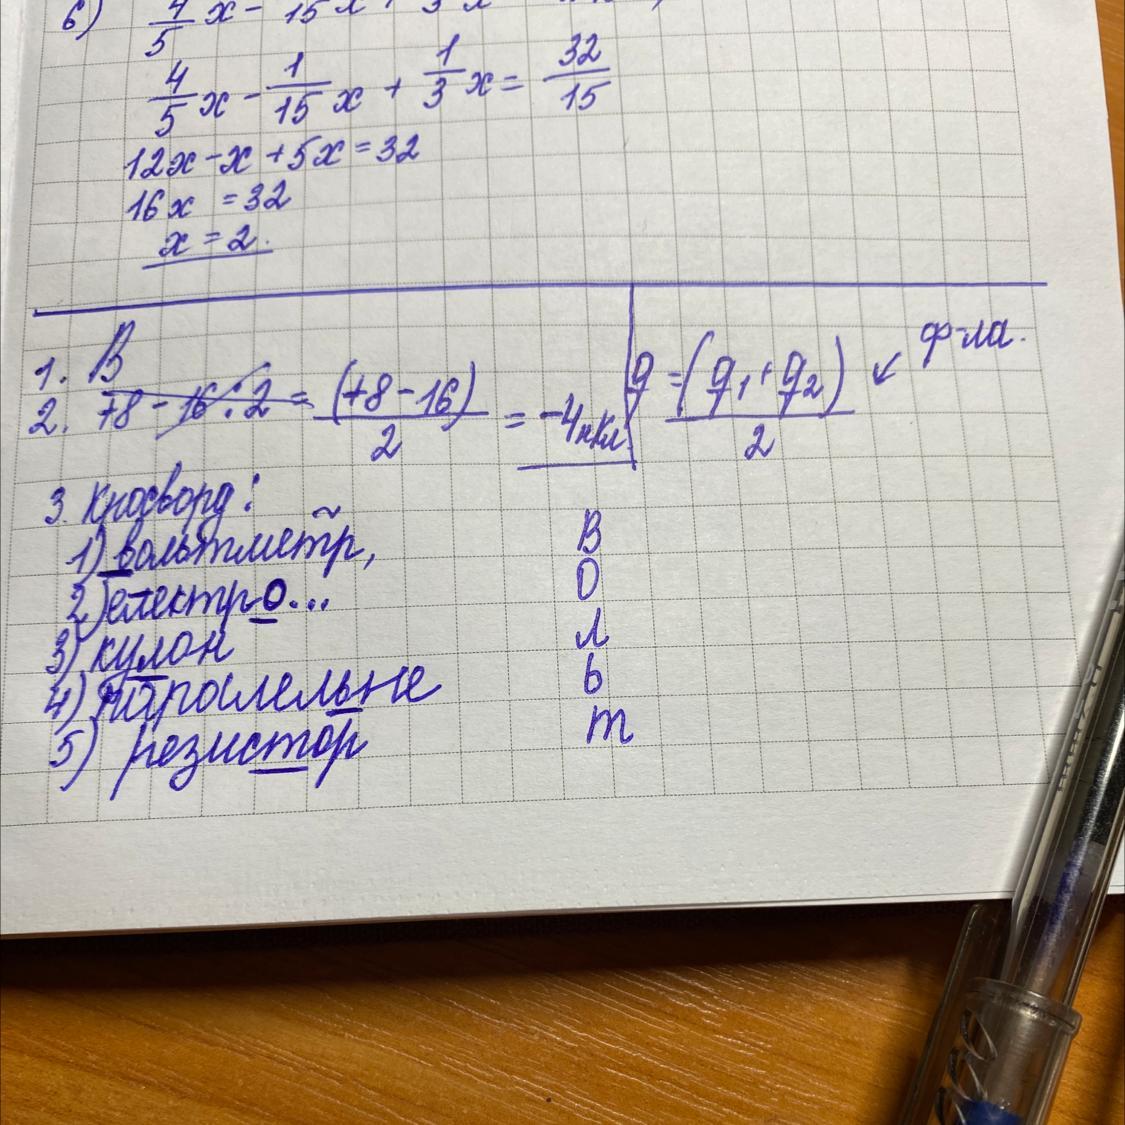 6) 4/5 x - 15 x + 3 x
4/5 x - 1/15 x + 1/3 x = 32/15
12x - x + 5x = 32
16x = 32
x = 2.
1. В
2. +8 - 16 : 2 = (+8 - 16)/2 = -4нКл
q = (q₁ + q₂)/2 ↙ ф-ла.
3. Кросворд:
1) вольтметр, В
2) електро... О
3) кулон Л
4) паралельне Ь
5) резистор т